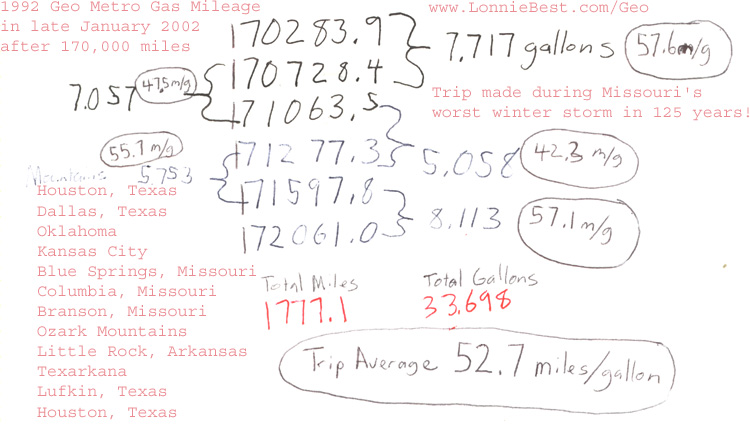 1992 Geo Metro Gas Mileage
in late January 2002
after 170,000 miles
www.LonnieBest.com/Geo
170283.9
7.717 gallons 57.6 m/g
170728.4
7.057 47.5 m/g
171063.5
Trip made during Missouri's
worst winter storm in 125 years!
171277.3
5.058 42.3 m/g
55.7 m/g
Mountains 5.753
171597.8
8.113 57.1 m/g
172061.0
Houston, Texas
Dallas, Texas
Oklahoma
Kansas City
Blue Springs, Missouri
Columbia, Missouri
Branson, Missouri
Ozark Mountains
Little Rock, Arkansas
Texarkana
Lufkin, Texas
Houston, Texas
Total Miles
1777.1
Total Gallons
33.698
Trip Average 52.7 miles/gallon